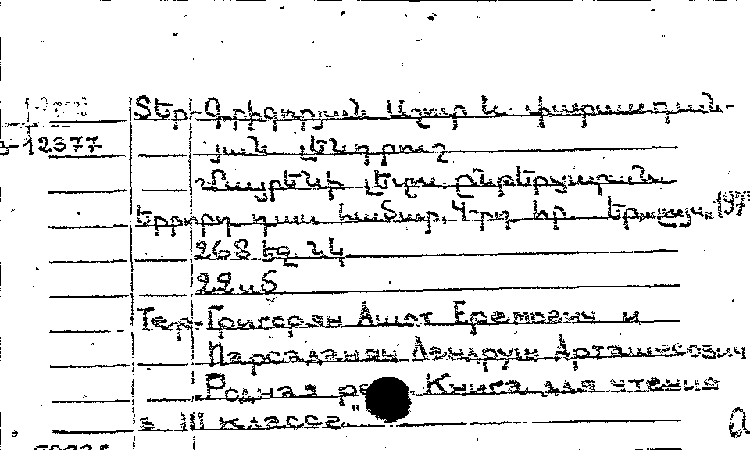 12377
Տեր-Գրիգորյան Աշոտ և Փարսադան-
յան Լենդրուշ
Մայրենի լեզու. ընթերցարան
երրորդ դաս. համար. 4-րդ հր. Եր., Լույս, 197
268 եջ նկ
22 սմ
Тер-Григорян Ашот Еремович и
Парсаданян Лендруш Арташесович
"Родная ре Книга для чтения
в III классе"